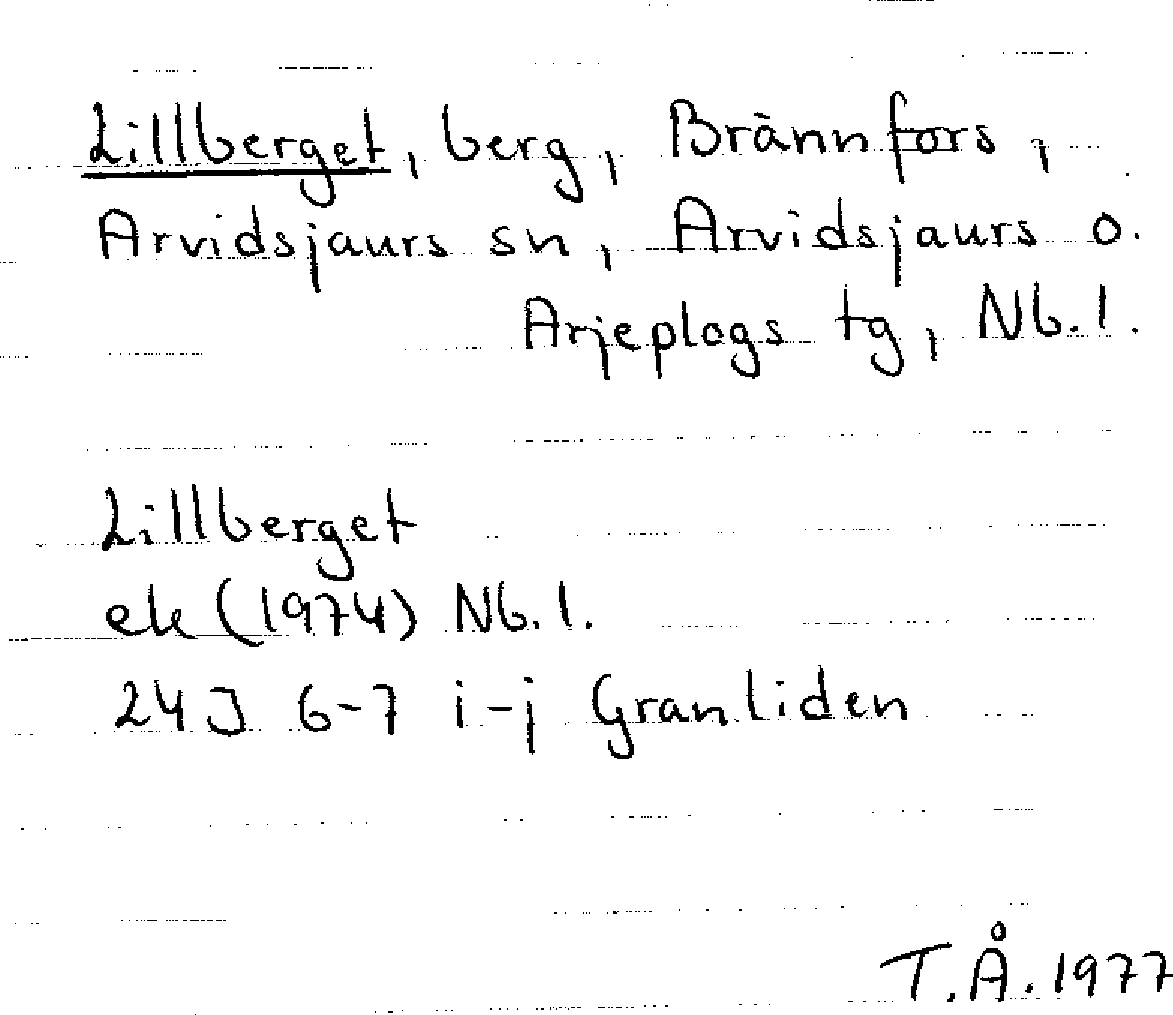 Lillberget, berg, Brännfors,
Arvidsjaurs sn, Arvidsjaurs o.
Arjeplogs tg, Nb.l.
Lillberget
ek (1974) Nb.l.
24J 6-7 i-j Granliden
T.Å.1977